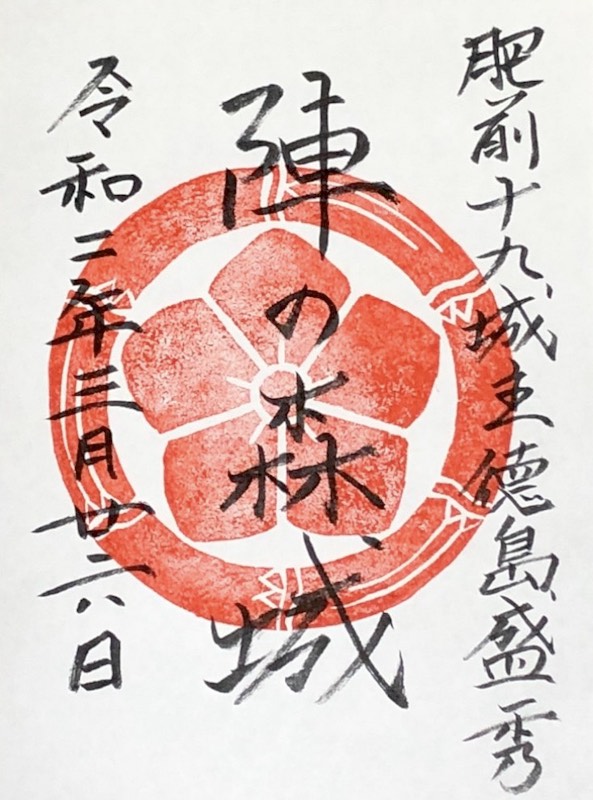 肥前十九城主徳島盛秀
陣の森城
令和二年三月廿六日